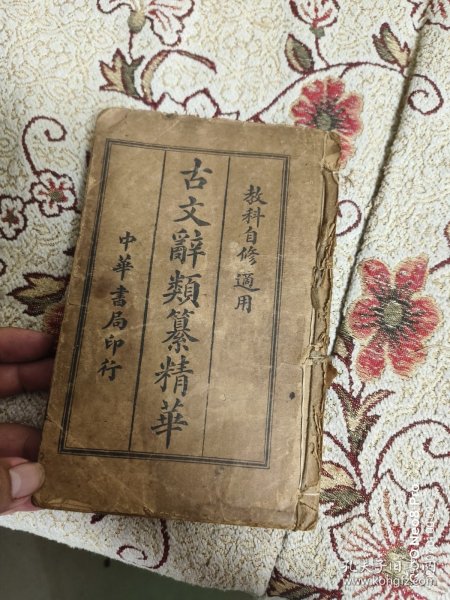 教科自修適用
古文辭類纂精華
中華書局印行
孔夫子旧书网
www.kongfz.com